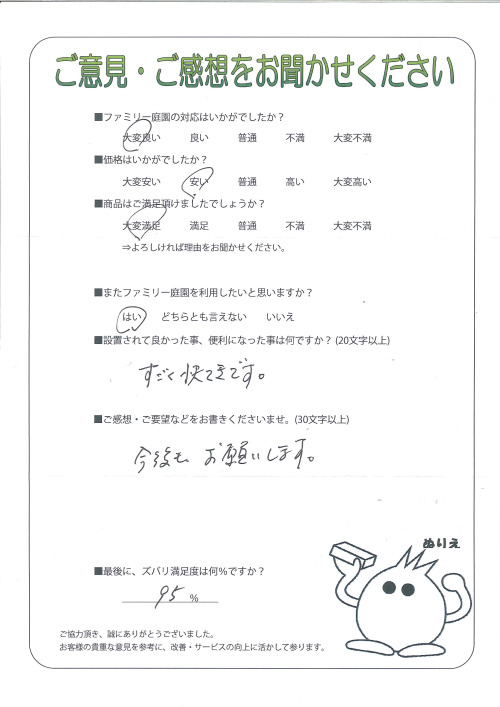 ご意見・ご感想をお聞かせください
■ファミリー庭園の対応はいかがでしたか？
大変良い 良い 普通 不満 大変不満
■価格はいかがでしたか？
大変安い 安い 普通 高い 大変高い
■商品はご満足頂けましたでしょうか？
大変満足 満足 普通 不満 大変不満
⇒よろしければ理由をお聞かせください。
■またファミリー庭園を利用したいと思いますか？
はい どちらとも言えない いいえ
■設置されて良かった事、便利になった事は何ですか？(20文字以上)
すごく快てきです。
■ご感想・ご要望などをお書きくださいませ。(30文字以上)
今後も お願いします。
ぬりえ
■最後に、ズバリ満足度は何%ですか？
95 %
ご協力頂き、誠にありがとうございました。
お客様の貴重な意見を参考に、改善・サービスの向上に活かして参ります。